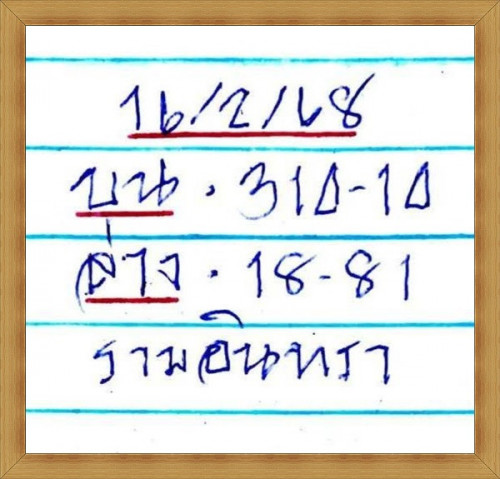 16/2/68
บน . 310-10
ล่าง . 18-81
รามอินทรา